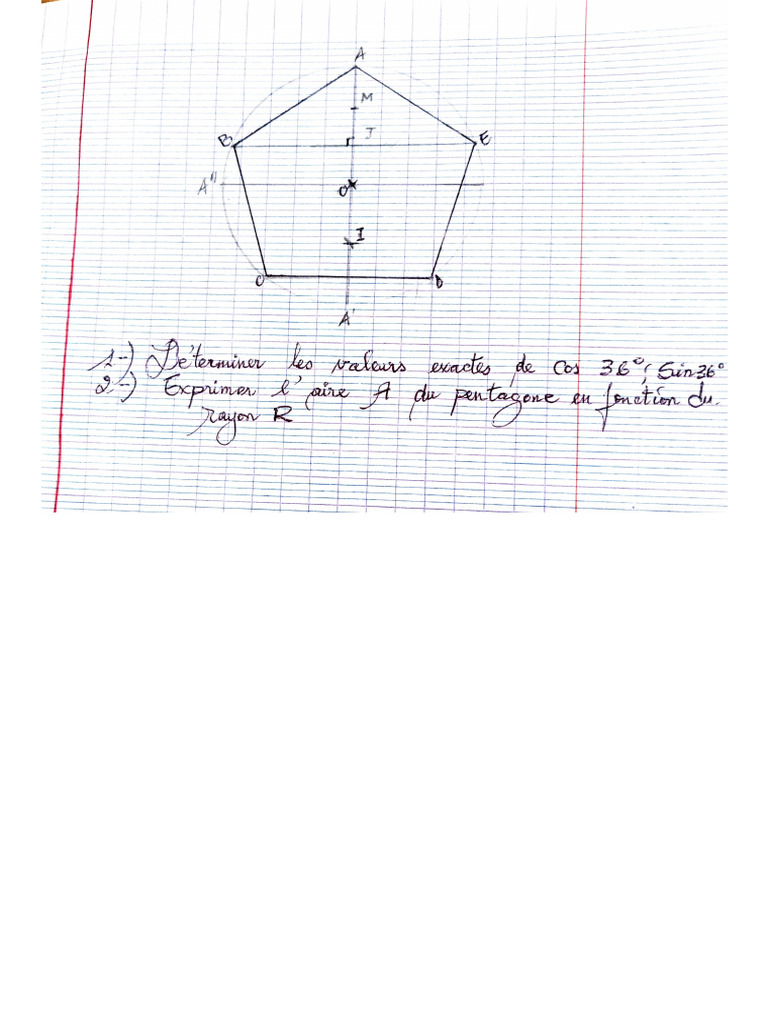 A
M
B
J
E
A"
O
I
C
D
A'
1-) Déterminer les valeurs exactes de cos 36°; Sin36°
2-) Exprimer l'aire A du pentagone en fonction du
rayon R